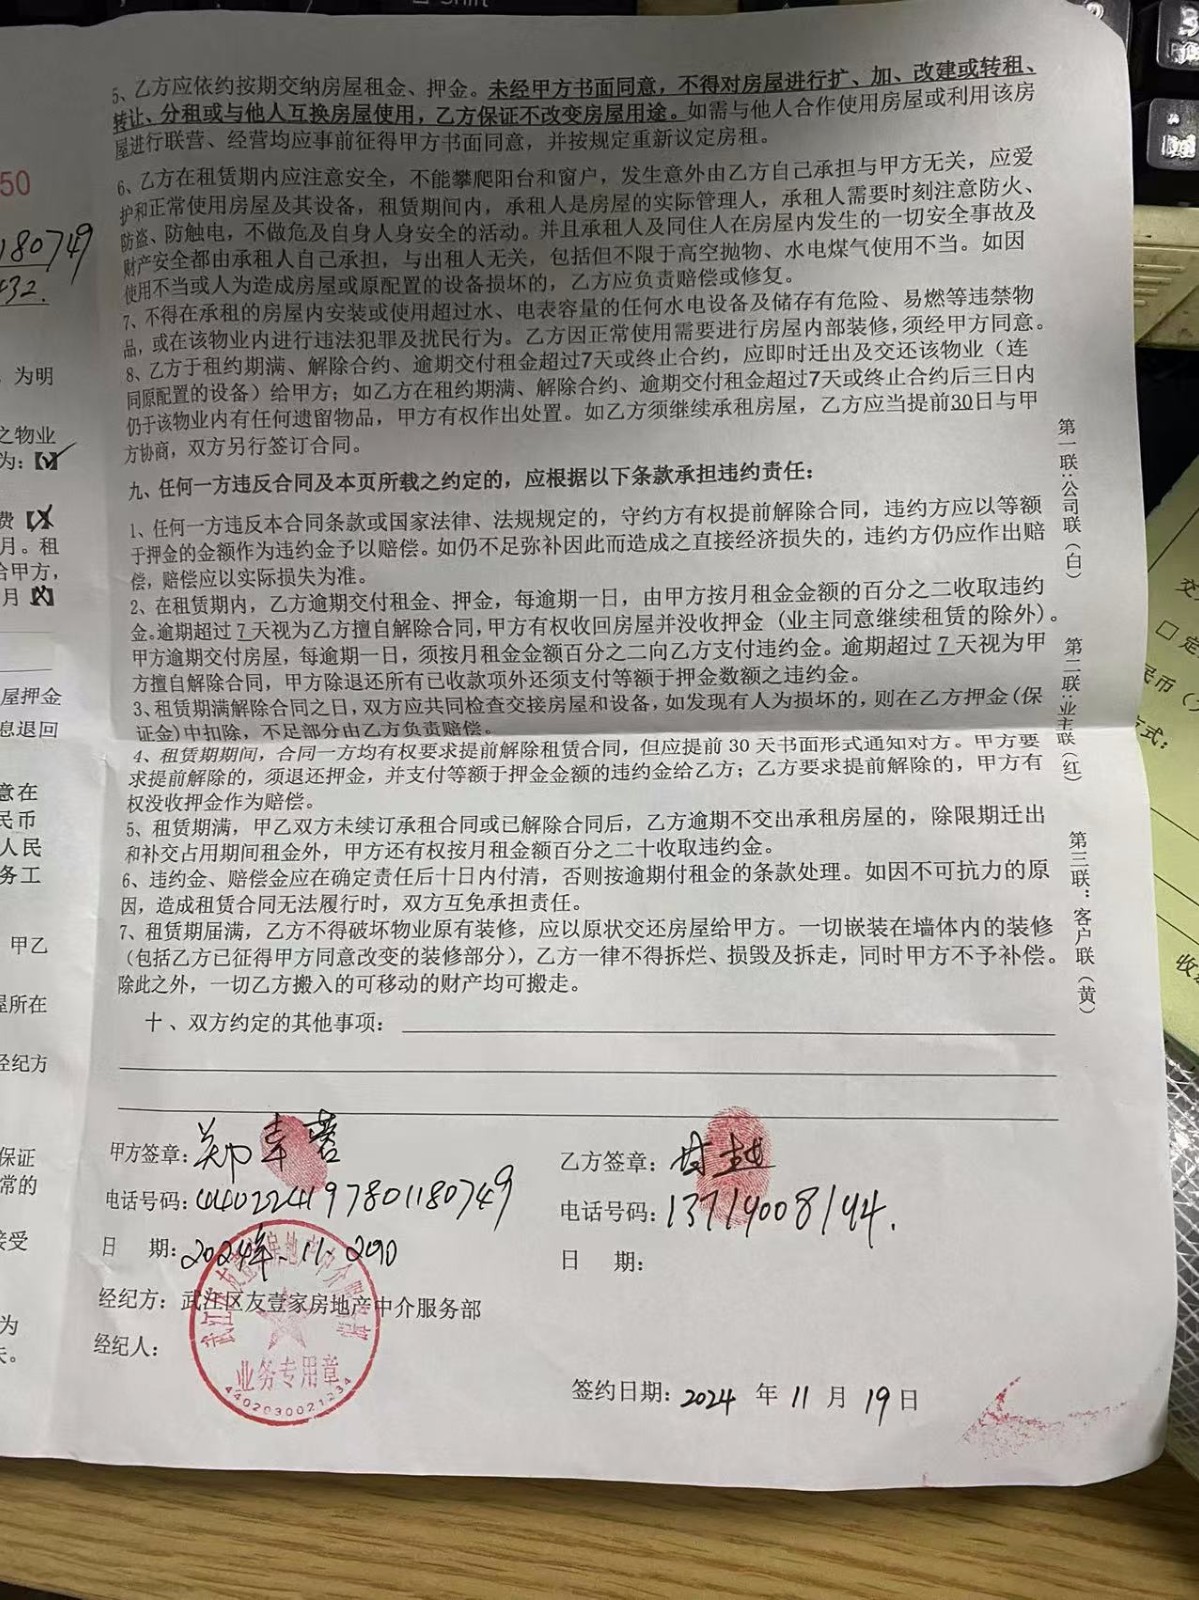 shift
5、乙方应依约按期交纳房屋租金、押金。未经甲方书面同意，不得对房屋进行扩、加、改建或转租、
转让、分租或与他人互换房屋使用，乙方保证不改变房屋用途。如需与他人合作使用房屋或利用该房
屋进行联营、经营均应事前征得甲方书面同意，并按规定重新议定房租。
6、乙方在租赁期内应注意安全，不能攀爬阳台和窗户，发生意外由乙方自己承担与甲方无关，应爱
护和正常使用房屋及其设备，租赁期间内，承租人是房屋的实际管理人，承租人需要时刻注意防火、
防盗、防触电，不做危及自身人身安全的活动。并且承租人及同住人在房屋内发生的一切安全事故及
财产安全都由承租人自己承担，与出租人无关，包括但不限于高空抛物、水电煤气使用不当。如因
使用不当或人为造成房屋或原配置的设备损坏的，乙方应负责赔偿或修复。
7、不得在承租的房屋内安装或使用超过水、电表容量的任何水电设备及储存有危险、易燃等违禁物
品，或在该物业内进行违法犯罪及扰民行为。乙方因正常使用需要进行房屋内部装修，须经甲方同意。
8、乙方于租约期满、解除合约、逾期交付租金超过7天或终止合约，应即时迁出及交还该物业（连
同原配置的设备）给甲方；如乙方在租约期满、解除合约、逾期交付租金超过7天或终止合约后三日内
仍于该物业内有任何遗留物品，甲方有权作出处置。如乙方须继续承租房屋，乙方应当提前30日与甲
方协商，双方另行签订合同。
九、任何一方违反合同及本页所载之约定的，应根据以下条款承担违约责任：
1、任何一方违反本合同条款或国家法律、法规规定的，守约方有权提前解除合同，违约方应以等额
于押金的金额作为违约金予以赔偿。如仍不足弥补因此而造成之直接经济损失的，违约方仍应作出赔
偿，赔偿应以实际损失为准。
2、在租赁期内，乙方逾期交付租金、押金，每逾期一日，由甲方按月租金金额的百分之二收取违约
金。逾期超过 7 天视为乙方擅自解除合同，甲方有权收回房屋并没收押金（业主同意继续租赁的除外）。
甲方逾期交付房屋，每逾期一日，须按月租金金额百分之二向乙方支付违约金。逾期超过 7 天视为甲
方擅自解除合同，甲方除退还所有已收款项外还须支付等额于押金数额之违约金。
3、租赁期满解除合同之日，双方应共同检查交接房屋和设备，如发现有人为损坏的，则在乙方押金(保
证金)中扣除，不足部分由乙方负责赔偿。
4、租赁期期间，合同一方均有权要求提前解除租赁合同，但应提前 30 天书面形式通知对方。甲方要
求提前解除的，须退还押金，并支付等额于押金金额的违约金给乙方；乙方要求提前解除的，甲方有
权没收押金作为赔偿。
5、租赁期满，甲乙双方未续订承租合同或已解除合同后，乙方逾期不交出承租房屋的，除限期迁出
和补交占用期间租金外，甲方还有权按月租金额百分之二十收取违约金。
6、违约金、赔偿金应在确定责任后十日内付清，否则按逾期付租金的条款处理。如因不可抗力的原
因，造成租赁合同无法履行时，双方互免承担责任。
7、租赁期届满，乙方不得破坏物业原有装修，应以原状交还房屋给甲方。一切嵌装在墙体内的装修
（包括乙方已征得甲方同意改变的装修部分），乙方一律不得拆烂、损毁及拆走，同时甲方不予补偿。
除此之外，一切乙方搬入的可移动的财产均可搬走。
十、双方约定的其他事项：
甲方签章：郑幸蓉
电话号码：440224197801180749
日 期：2024年.11.20
经纪方：武江区友壹家房地产中介服务部
经纪人：
武江区友壹家房地产中介服务部
业务专用章
4402030021234
乙方签章：
电话号码：13719008144.
日 期：
签约日期：2024 年 11 月 19 日
第一联：公司联（白）
第二联：业主联（红）
第三联：客户联（黄）
50
180749
432.
，为明
之物业
为：【
费【
月。租
给甲方，
月【
屋押金
息退回
意在
民币
人民
务工
甲乙
屋所在
经纪方
保证
常的
接受
为
交
□ 定
民币（
方式：
收